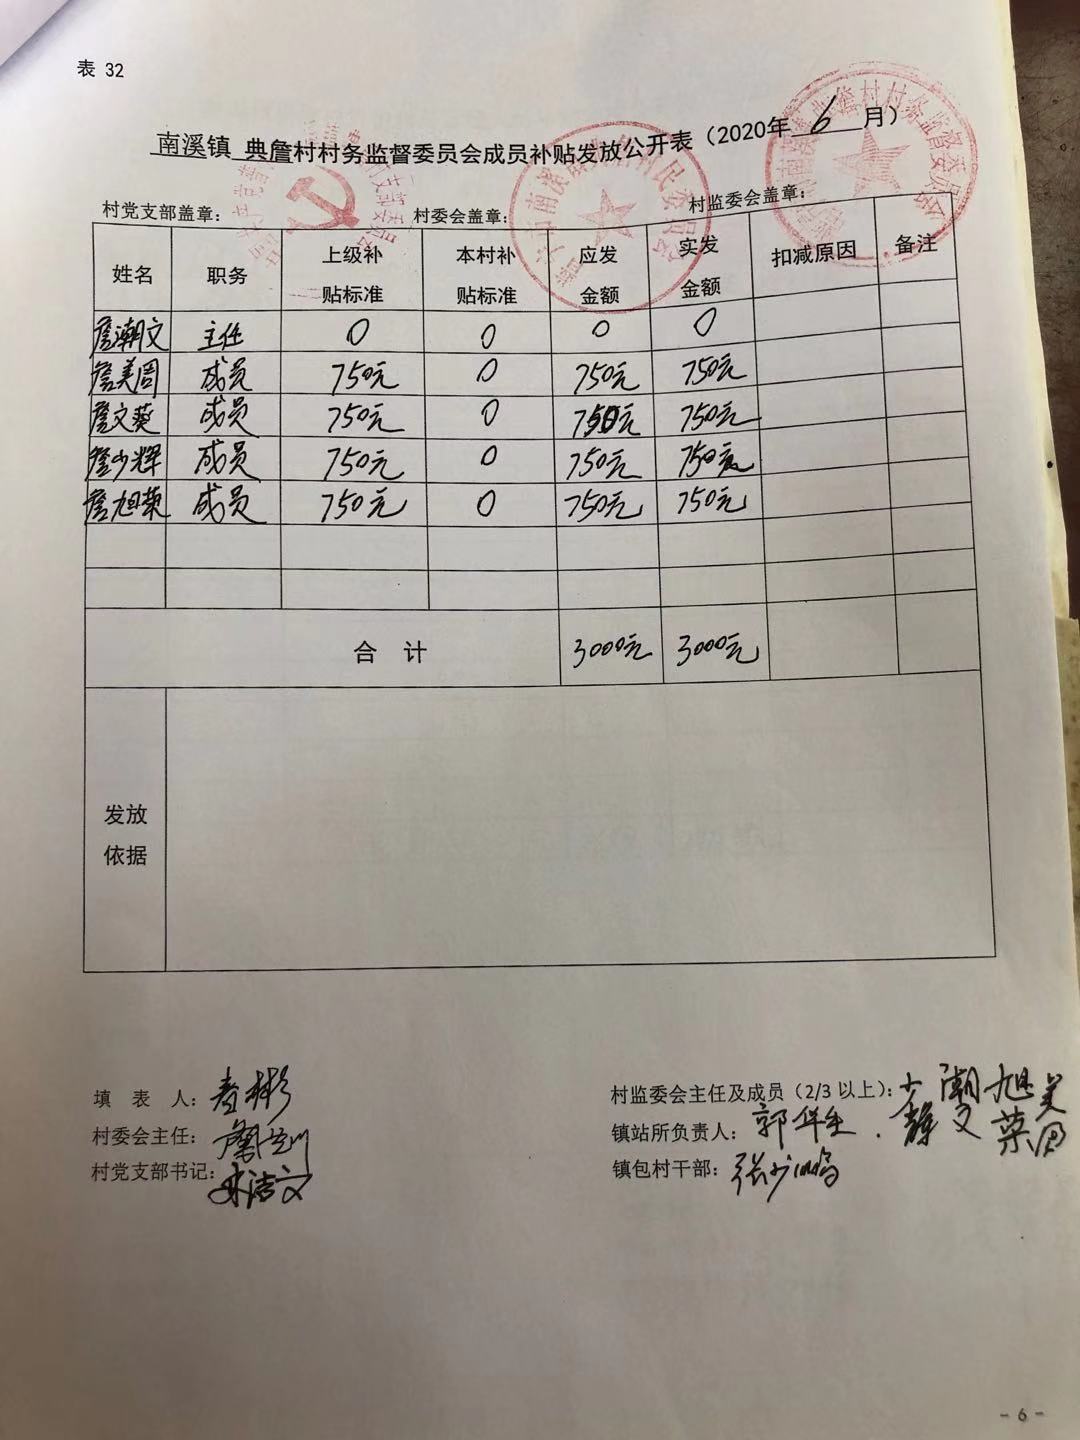 表 32
南溪镇 典詹村村务监督委员会成员补贴发放公开表（2020年 6 月）
村党支部盖章： 村委会盖章： 村监委会盖章：
姓名 职务 上级补贴标准 本村补贴标准 应发金额 实发金额 扣减原因 备注
詹潮文 主任 0 0 0 0
詹美周 成员 750元 0 750元 750元
詹文葵 成员 750元 0 750元 750元
詹少辉 成员 750元 0 750元 750元
詹旭荣 成员 750元 0 750元 750元
合 计 3000元 3000元
发放
依据
填 表 人：
村委会主任：
村党支部书记：
村监委会主任及成员（2/3 以上）：
镇站所负责人：
镇包村干部：
- 6 -